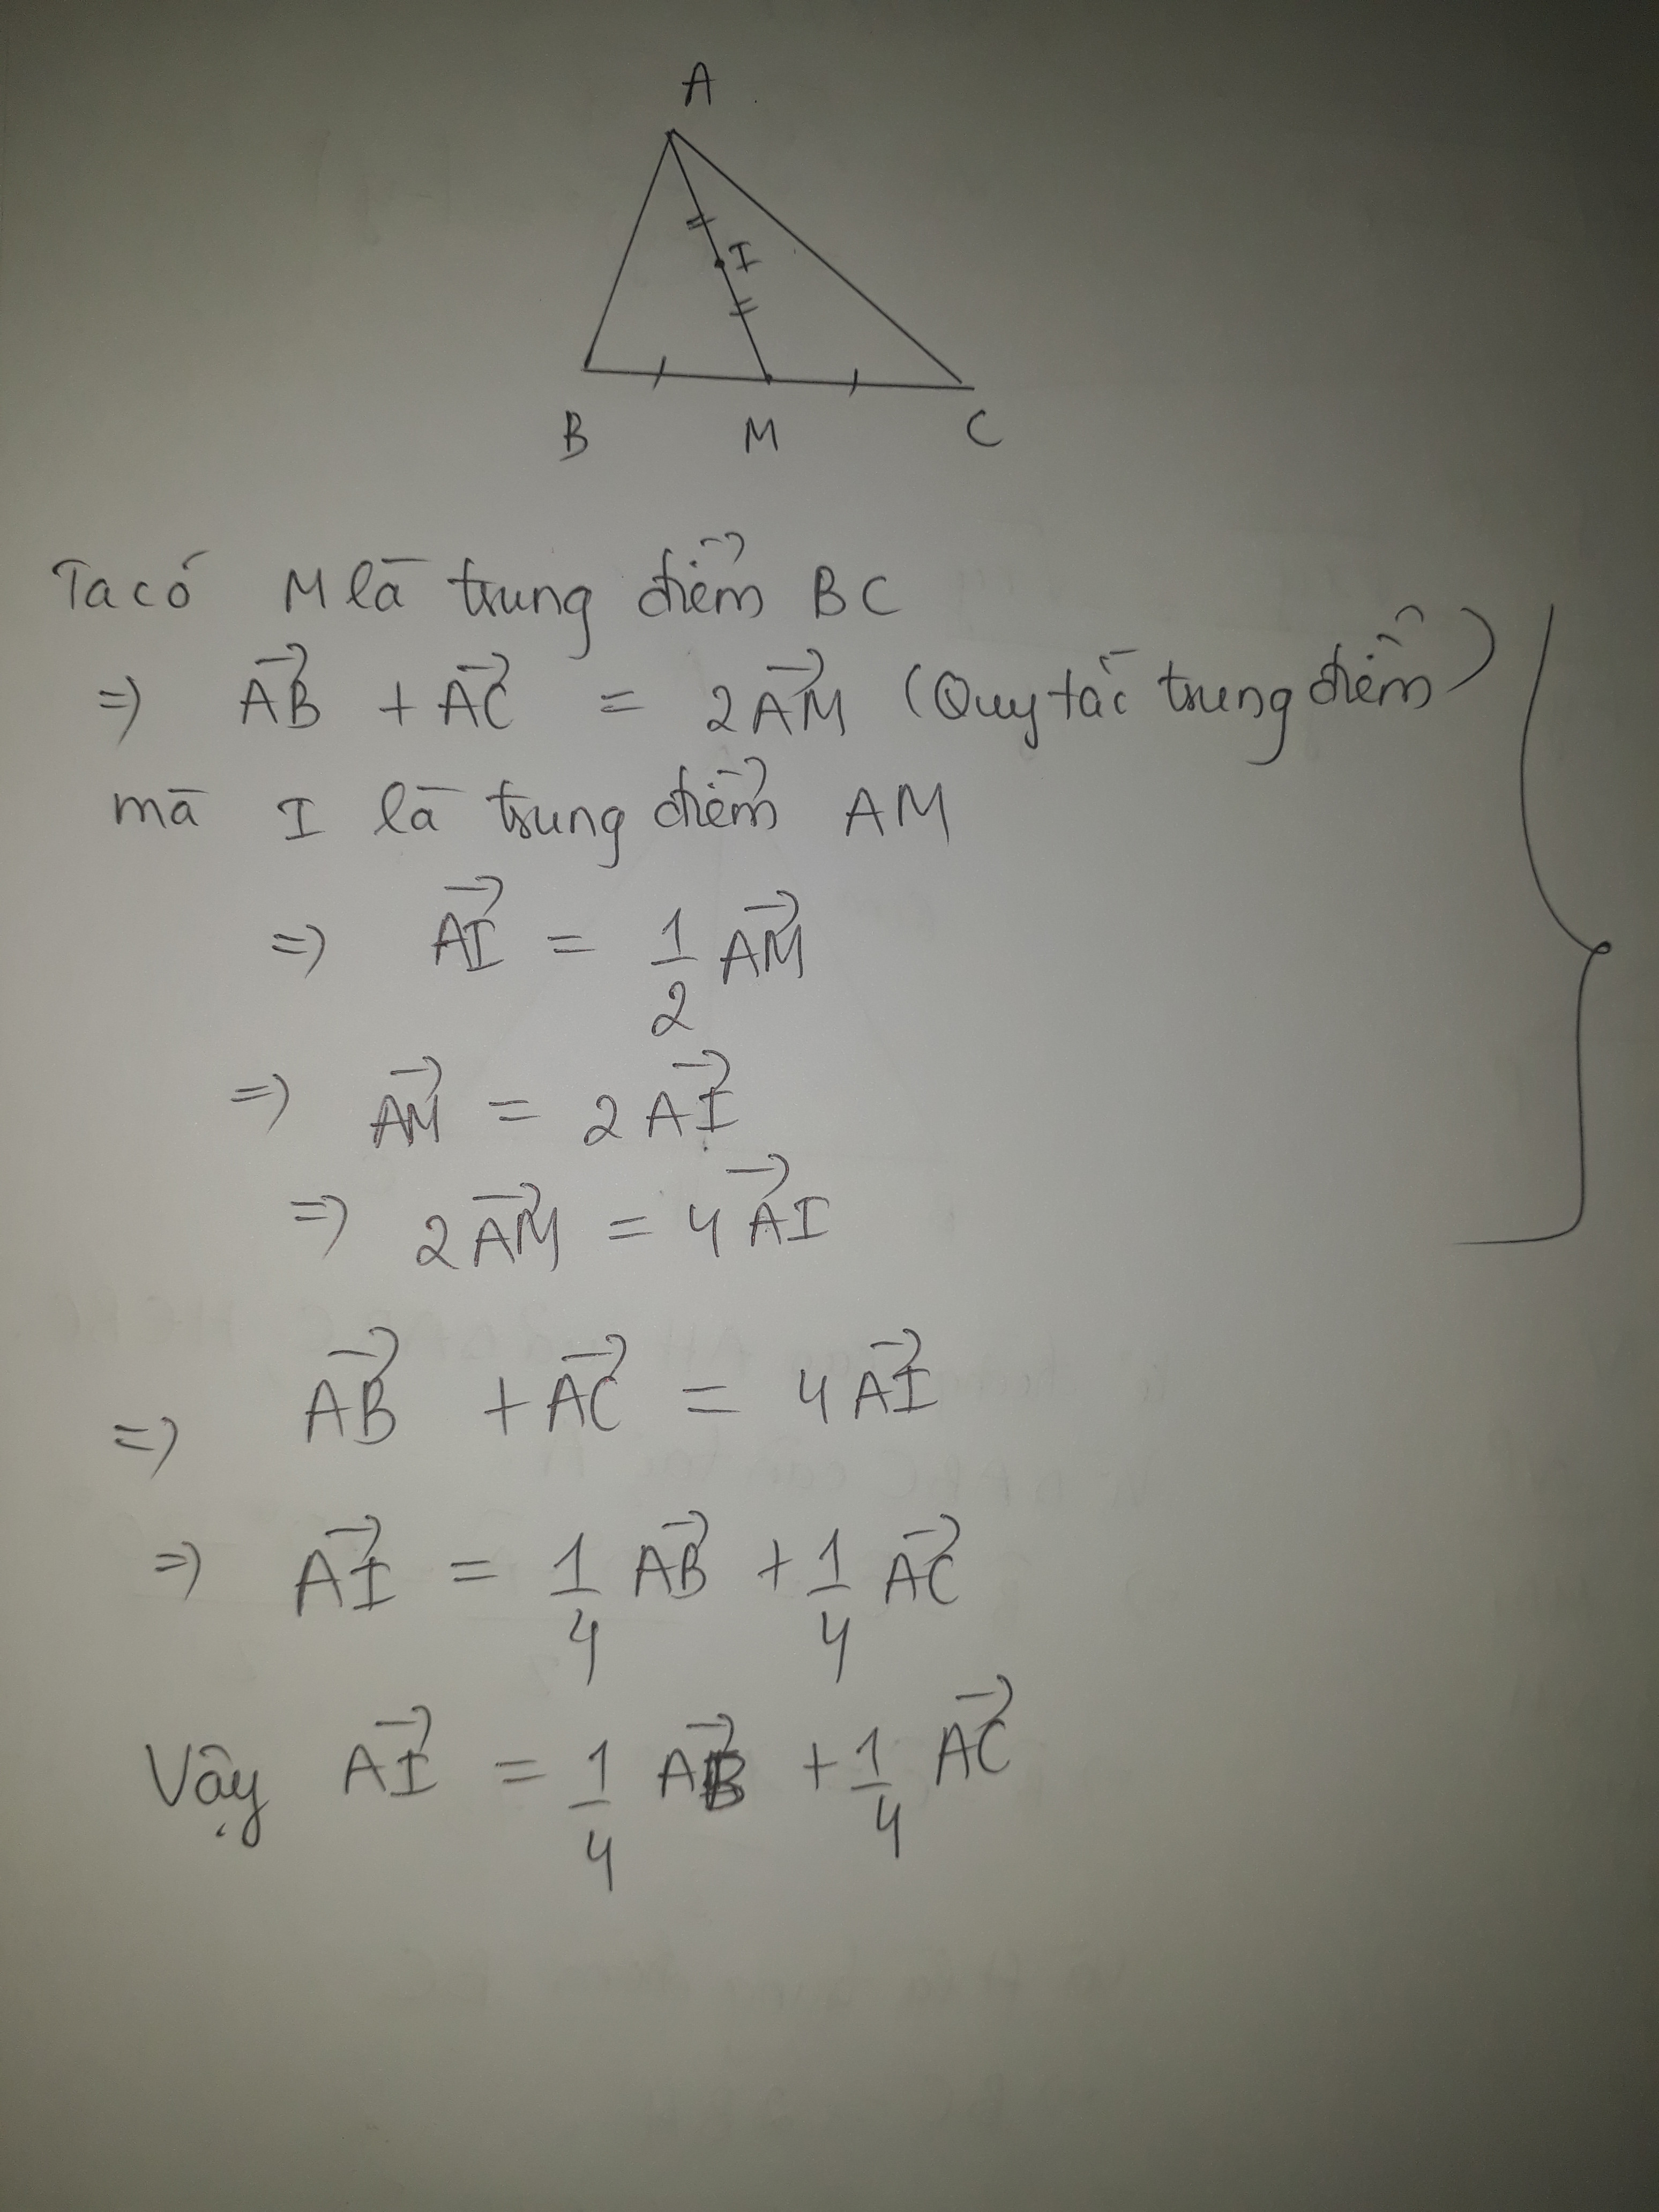 A
I
B M C
Ta có M là trung điểm BC
=> AB→ + AC→ = 2AM→ (Quy tắc trung điểm)
mà I là trung điểm AM
=> AI→ = 1/2 AM→
=> AM→ = 2AI→
=> 2AM→ = 4AI→
=> AB→ + AC→ = 4AI→
=> AI→ = 1/4 AB→ + 1/4 AC→
Vậy AI→ = 1/4 AB→ + 1/4 AC→